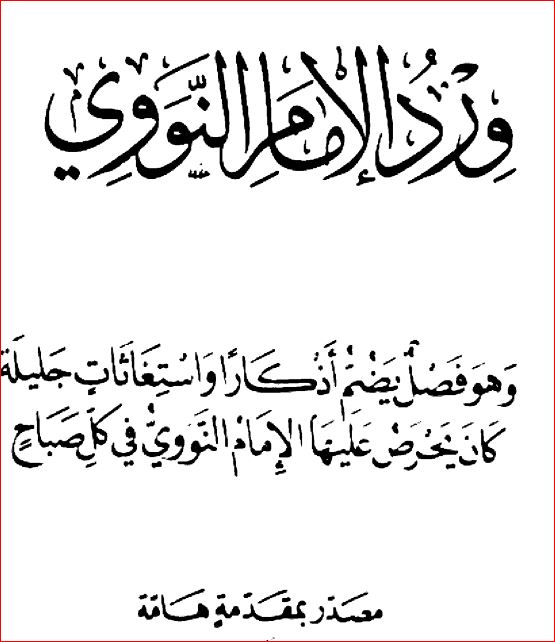 وِرْدُ الإِمَامِ النَّوَوِي
وَهوَ فَصْلٌ يَضُمُّ أَذْكَارًا وَاسْتِغَاثَاتٍ جَليلَة
كَانَ يَحْرَصُ عَلَيهَا الإِمَامُ النَّوَوِيُّ في كلِّ صَبَاحٍ
مصَدّر بمقَدّمةٍ هَامّة